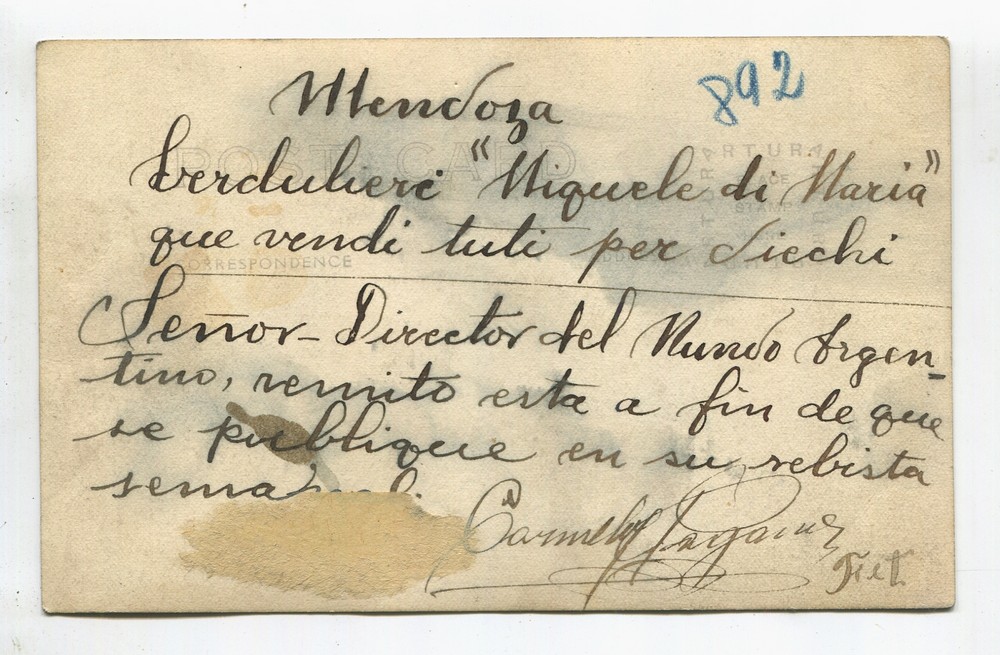 892
Mendoza
POST CARD
ARTURA
PLACE
STAMP
Verdulieri "Miquele di Maria"
que vendi tuti per siechi
CORRESPONDENCE
Señor - Director del Mundo Argen-
tino, remito esta a fin de que
se publique en su rebista
semanal.
Carmelo